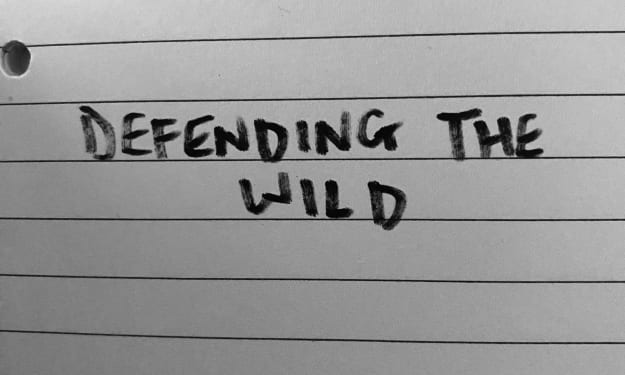 DEFENDING THE
WILD